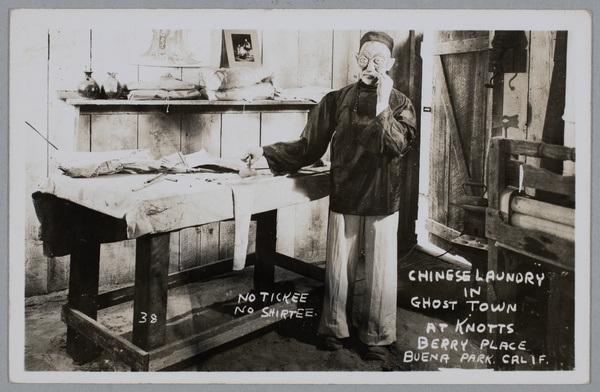 38
NO TICKEE
NO SHIRTEE.
CHINESE LAUNDRY
IN
GHOST TOWN
AT KNOTTS
BERRY PLACE
BUENA PARK. CALIF.